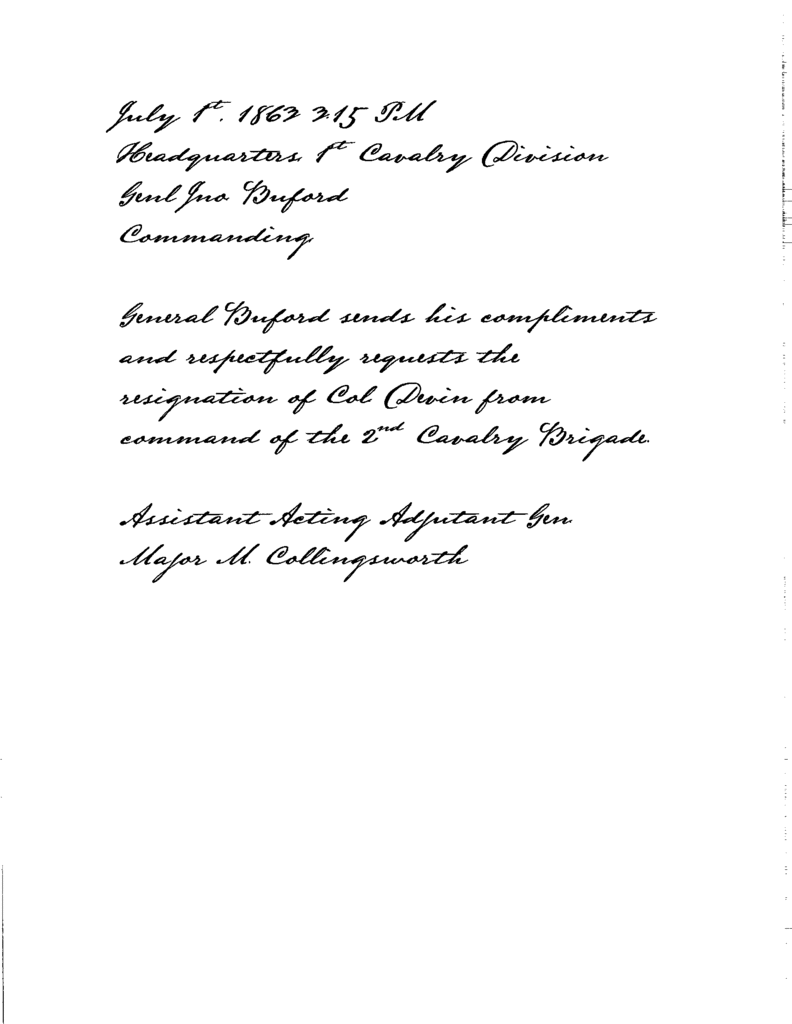 July 1st. 1863 3.15 PM
Headquarters, 1st Cavalry Division
Genl Jno. Buford
Commanding,
General Buford sends his compliments
and respectfully requests the
resignation of Col. Devin from
command of the 2nd Cavalry Brigade.
Assistant Acting Adjutant Gen.
Major M. Collingsworth